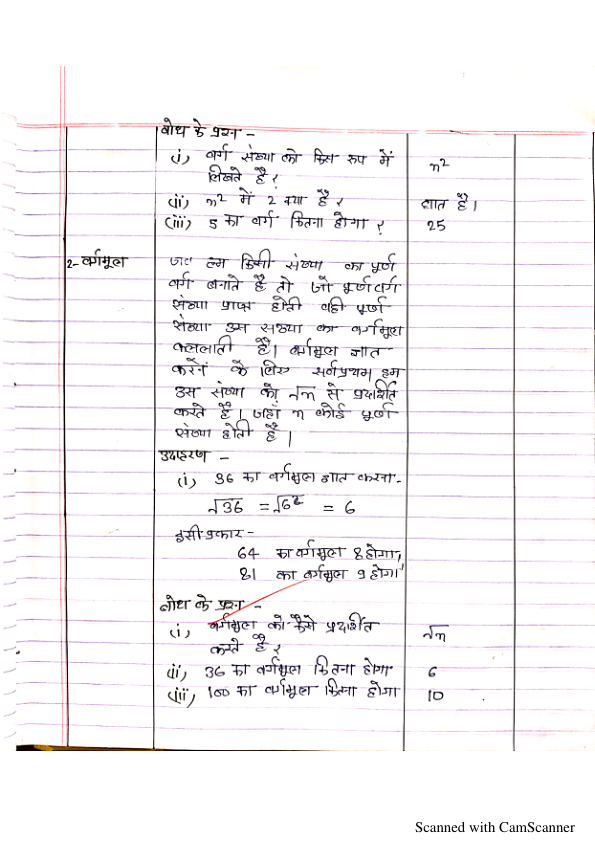 बोध के प्रश्न -
(i) वर्ग संख्या को किस रूप में
लिखते है ? n²
(ii) n² में 2 क्या है ? घात है।
(iii) 5 का वर्ग कितना होगा ? 25
2- वर्गमूल जब हम किसी संख्या का पूर्ण
वर्ग बनाते है तो जो पूर्ण वर्ग
संख्या प्राप्त होती वही पूर्ण
संख्या उस संख्या का वर्गमूल
कहलाती है। वर्गमूल ज्ञात
करनें के लिए सर्वप्रथम हम
उस संख्या को √n से प्रदर्शित
करते है। जहाँ n कोई पूर्ण
संख्या होती है।
उदाहरण -
(i) 36 का वर्गमूल ज्ञात करना -
√36 = √6² = 6
इसी प्रकार -
64 का वर्गमूल 8 होगा,
81 का वर्गमूल 9 होगा
बोध के प्रश्न -
(i) वर्गमूल को कैसे प्रदर्शित √n
करते है ?
(ii) 36 का वर्गमूल कितना होगा 6
(iii) 100 का वर्गमूल कितना होगा 10
Scanned with CamScanner